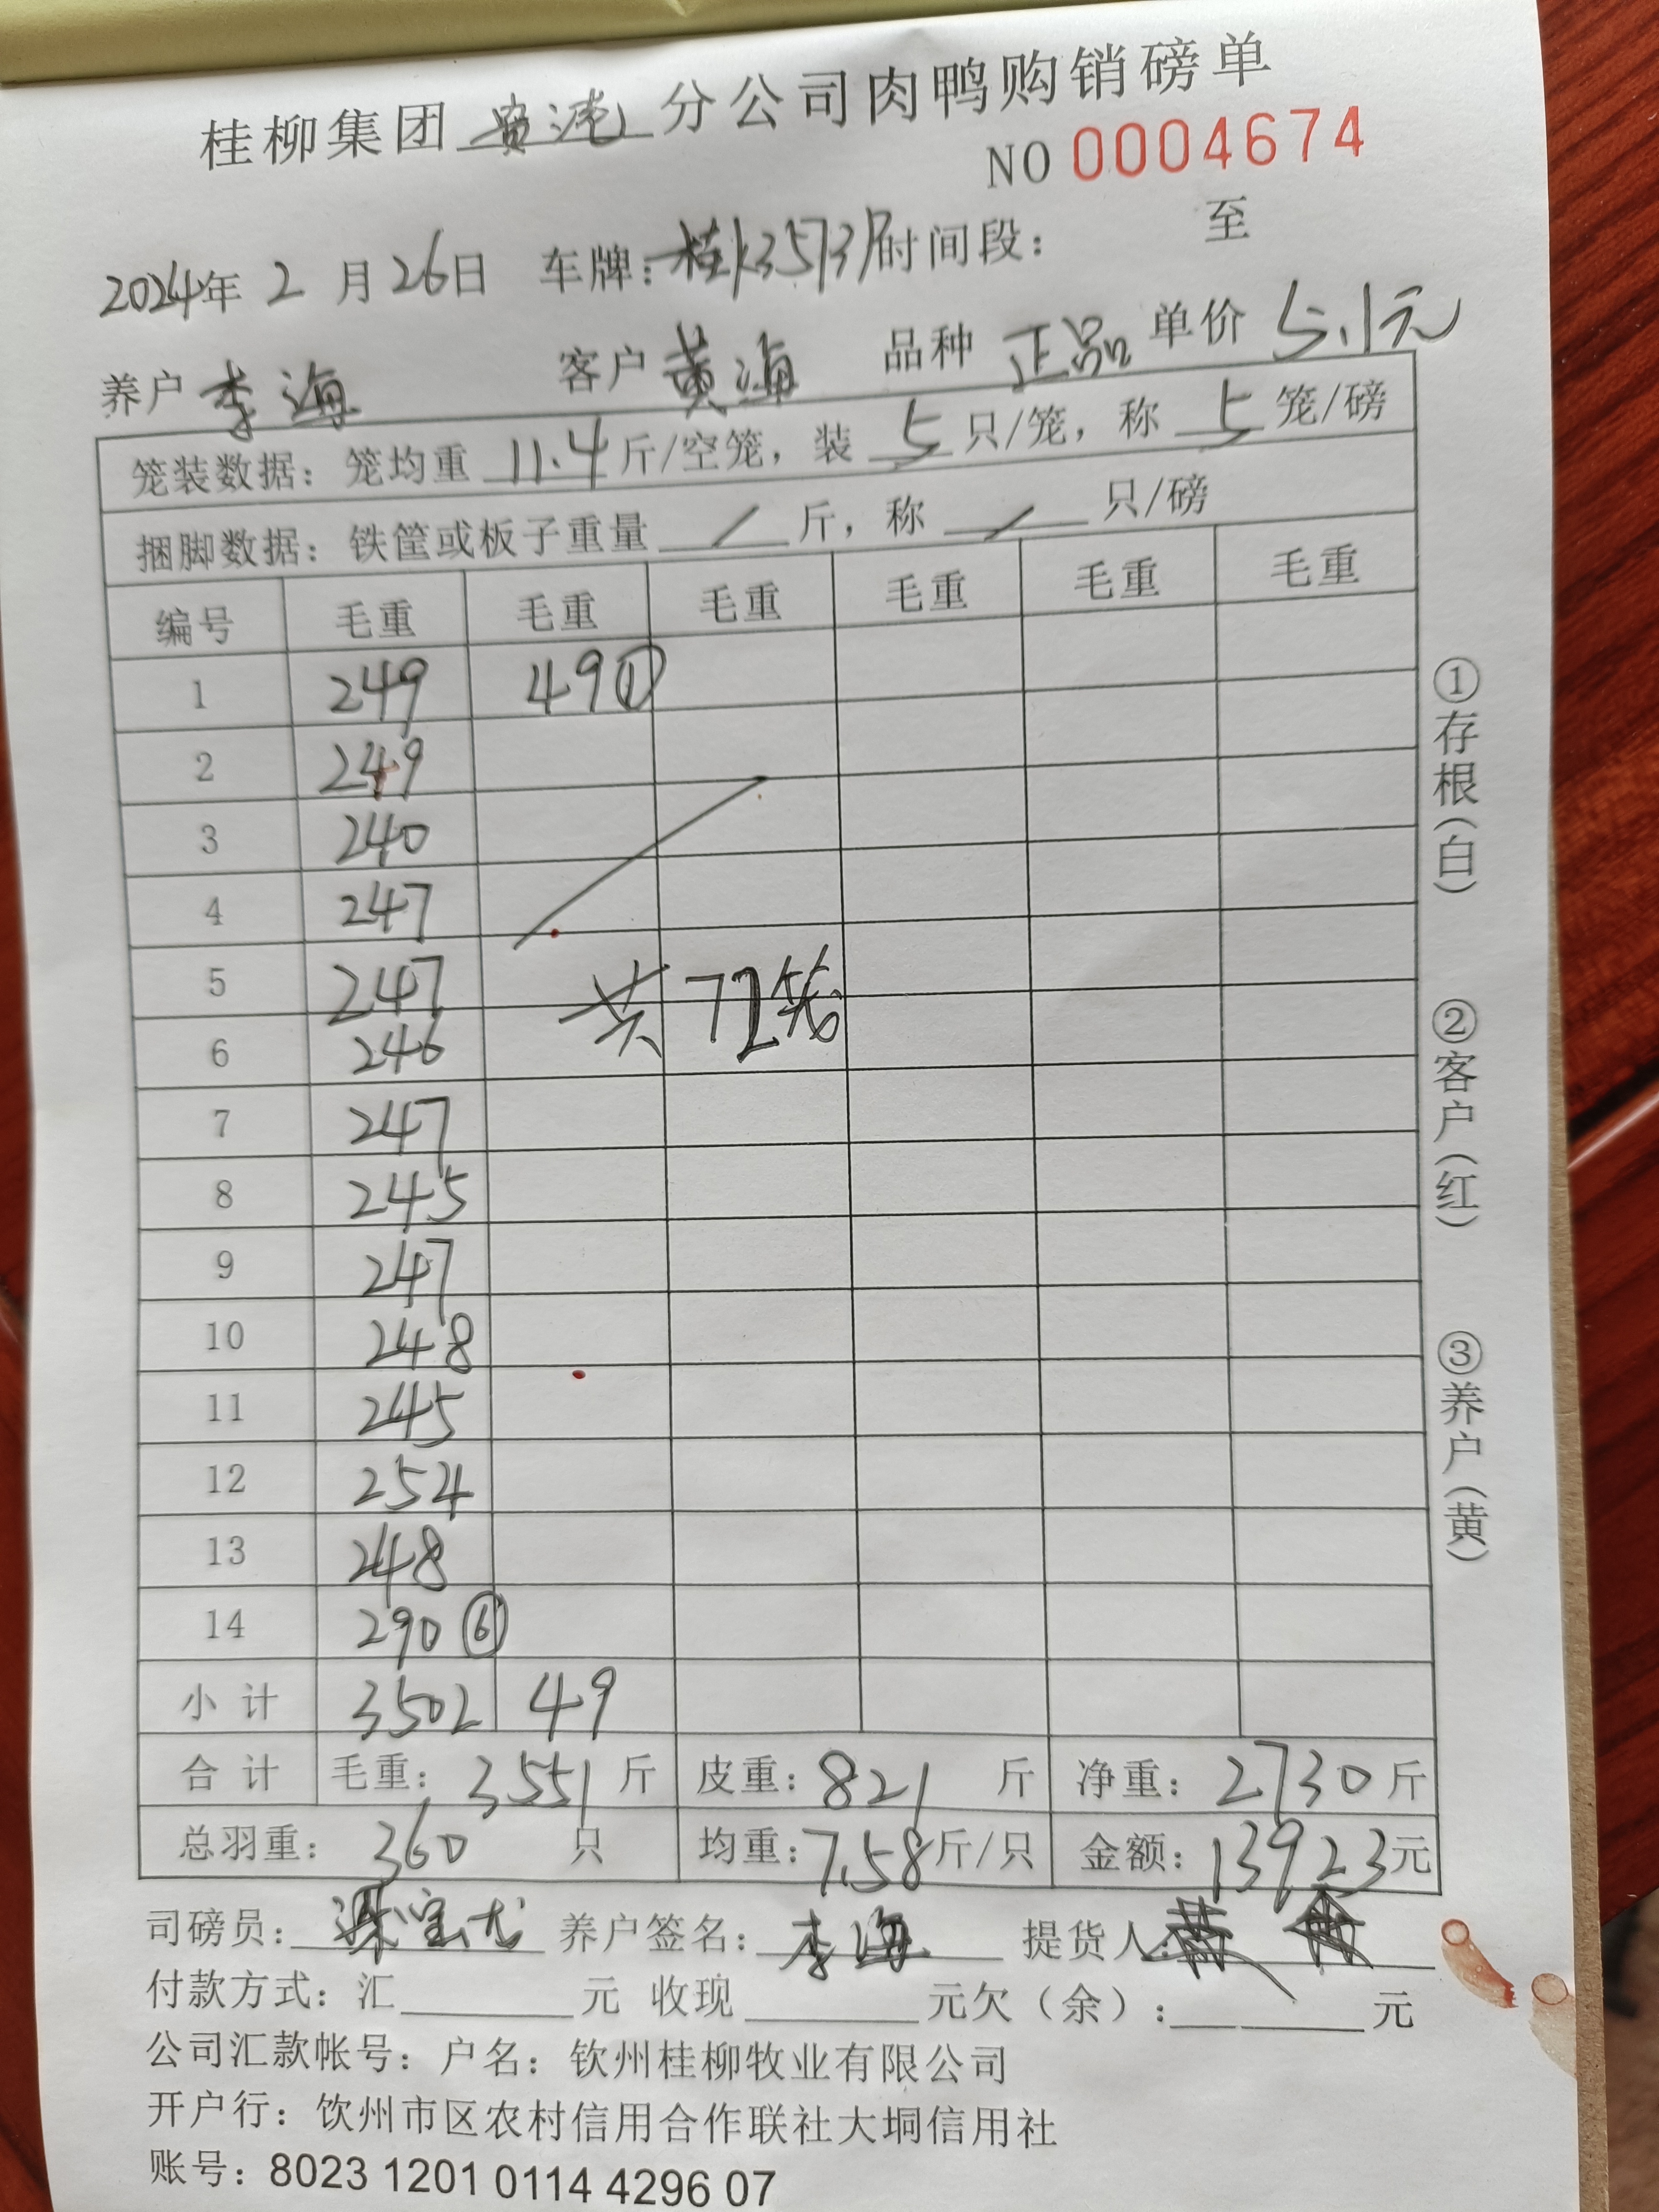 桂柳集团贵港分公司肉鸭购销磅单
NO 0004674
2024年 2 月 26日 车牌：桂K35737 时间段： 至
养户 李海 客户 黄海 品种 正品 单价 5.1元
笼装数据：笼均重 11.4 斤/空笼，装 5 只/笼，称 5 笼/磅
捆脚数据：铁筐或板子重量 / 斤，称 / 只/磅
编号 毛重 毛重 毛重 毛重 毛重 毛重
1 249 49①
2 249
3 240
4 247
5 247 共 72笼
6 246
7 247
8 245
9 247
10 248
11 245
12 254
13 248
14 290⑥
小计 3502 49
合计 毛重：3551 斤 皮重：821 斤 净重：2730 斤
总羽重：360 只 均重：7.58斤/只 金额：13923元
司磅员： 养户签名：李海 提货人：
付款方式：汇 元 收现 元欠（余）： 元
公司汇款帐号：户名：钦州桂柳牧业有限公司
开户行：饮州市区农村信用合作联社大垌信用社
账号：8023 1201 0114 4296 07
①存根（白）
②客户（红）
③养户（黄）